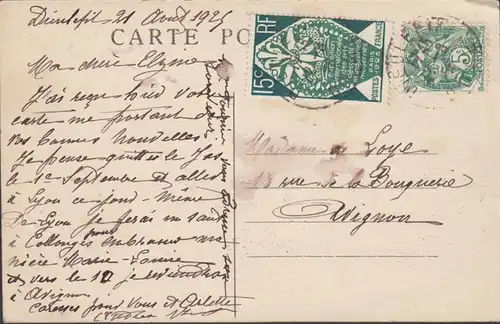 Dieulefit 21 Août 1925
CARTE PO
Ma chère Elyane
J'ai reçu hier votre
carte me portant de
vos bonnes nouvelles
Je pense quitter le Jas
le 1er Septembre et aller
à Lyon ce jour-même
De Lyon je ferai un saut
à Collonges pour embrasser ma
nièce Marie-Louise
et vers le 10 je reviendrai
à Avignon
Caresses pour Vous et Arlette
15c RF
POSTES FRANCE
PARIS 1925
5c
Madame de Loye
18 rue de la Bouquerie
Avignon